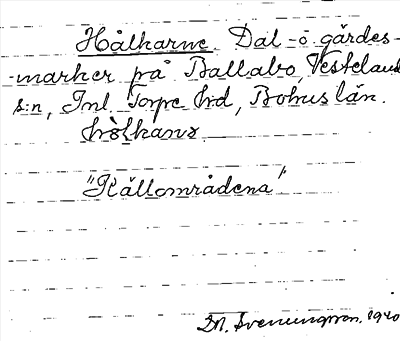 Hålkarne. Dal- o gärdes-
-marker på Ballabo, Vestelands
s:n, Inl. Torpe hrd, Bohus län.
hòlkanɐ
"Källområdena"
M. Svenungsson. 1940